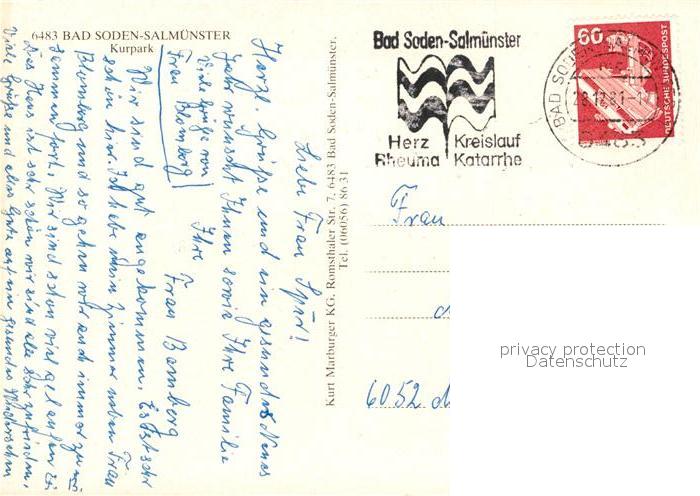 6483 BAD SODEN-SALMÜNSTER
Kurpark
Liebe Frau Spür!
Herzl. Grüße und ein gesundes Neues
Jahr wünscht Ihnen sowie Ihre Familie
Ihre Frau Bamberg
Viele Grüße von
Frau Blomberg
Wir sind gut angekommen. Es ist sehr
schön hier. Ich habe mein Zimmer neben Frau
Blomberg und so gehen wir auch immer zu
sammen fort. Wir sind schon viel gelaufen
Das Haus ist sehr schön wir sind alle sehr zufrieden.
Viele Grüße und alles Gute auf ein gesundes Wiedersehn
Kurt Marburger KG, Romsthaler Str. 7, 6483 Bad Soden-Salmünster,
Tel. (06056) 8631
Bad Soden-Salmünster
Herz Kreislauf
Rheuma Katarrhe
60
DEUTSCHE BUNDESPOST
BAD SODEN
Frau
6052
privacy protection
Datenschutz